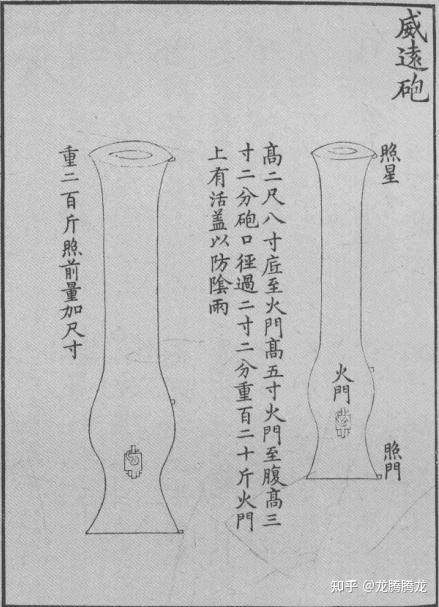 威遠砲
照星
火門
照門
高二尺八寸底至火門高五寸火門至腹高三
寸二分砲口徑過二寸二分重百二十斤火門
上有活盖以防陰雨
重二百斤照前量加尺寸
知乎 @龙腾腾龙